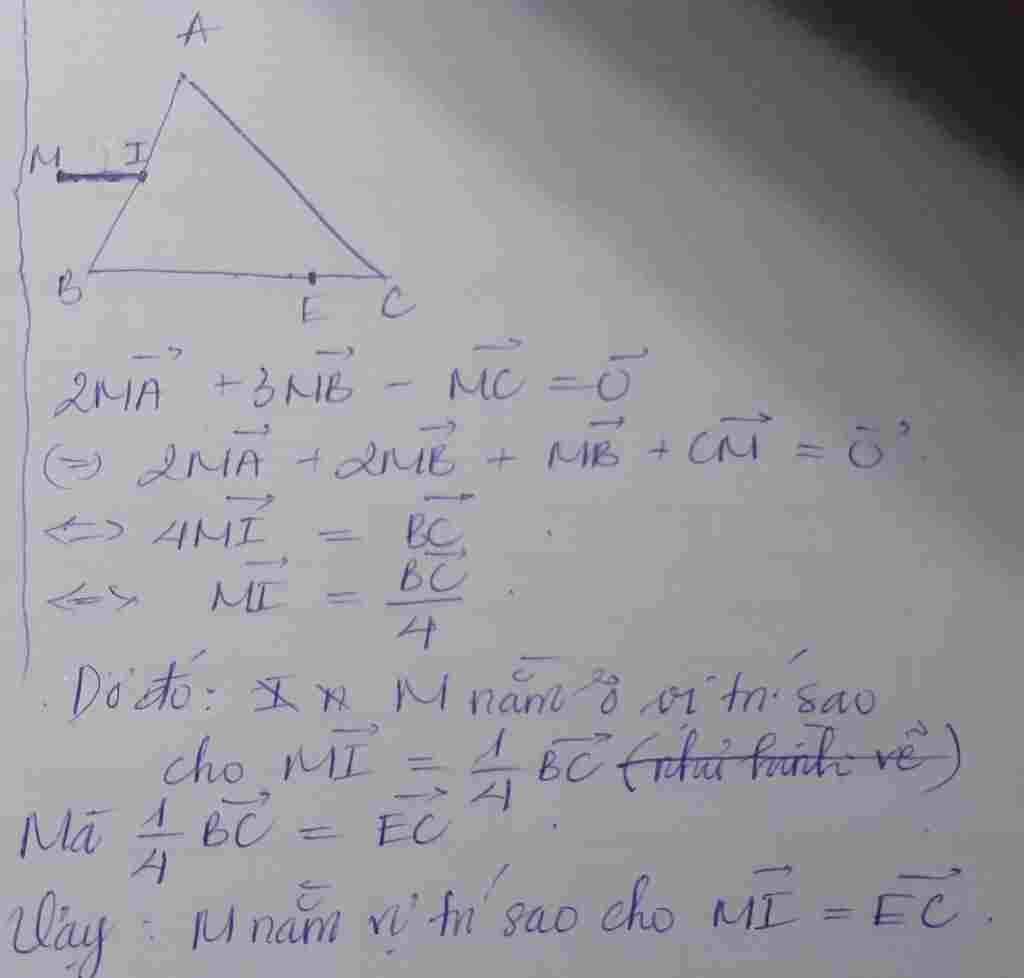 A
M I
B E C
2MA→ + 3MB→ - MC→ = 0→
(=) 2MA→ + 2MB→ + MB→ + CM→ = 0→.
<=> 4MI→ = BC→.
<=> MI→ = BC→/4.
Do đó: M nằm ở vị trí sao
cho MI→ = 1/4 BC→ (như hình vẽ)
Mà 1/4 BC→ = EC→.
Vậy: M nằm vị trí sao cho MI→ = EC→.